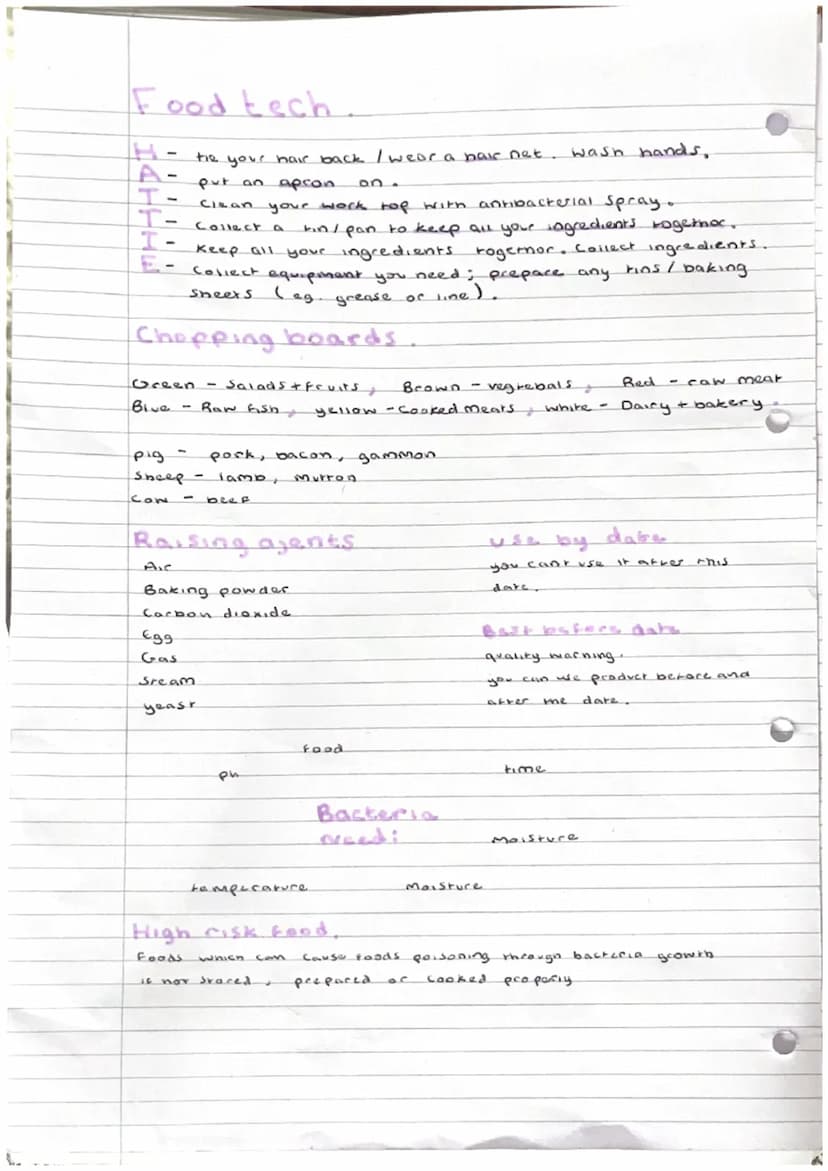 Food tech.
H - tie your hair back / wear a hair net. wash hands.
A - put an apron on.
T - Clean your work top with antibacterial spray.
T - Collect a tin/pan to keep all your ingredients together.
I - Keep all your ingredients together. Collect ingredients.
E - Collect equipment you need; prepare any tins / baking
sheets (eg. grease or line).
Chopping boards.
Green - Salads + fruits, Brown - vegtebals, Red - raw meat
Blue - Raw fish, yellow - Cooked meats, white - Dairy + bakery.
pig - pork, bacon, gammon
Sheep - lamb, mutton
Cow - beef
Raising agents
Air
Baking powder
Carbon dioxide
Egg
Gas
Steam
yeast
use by date
you cant use it after this
date.
Best before date
quality warning.
you can use product before and
after the date.
food
ph
time
Bacteria
need:
Moisture
temperature
Moisture
High risk food.
Foods which can cause foods poisoning through bacteria growth
if not stored, prepared or cooked properly